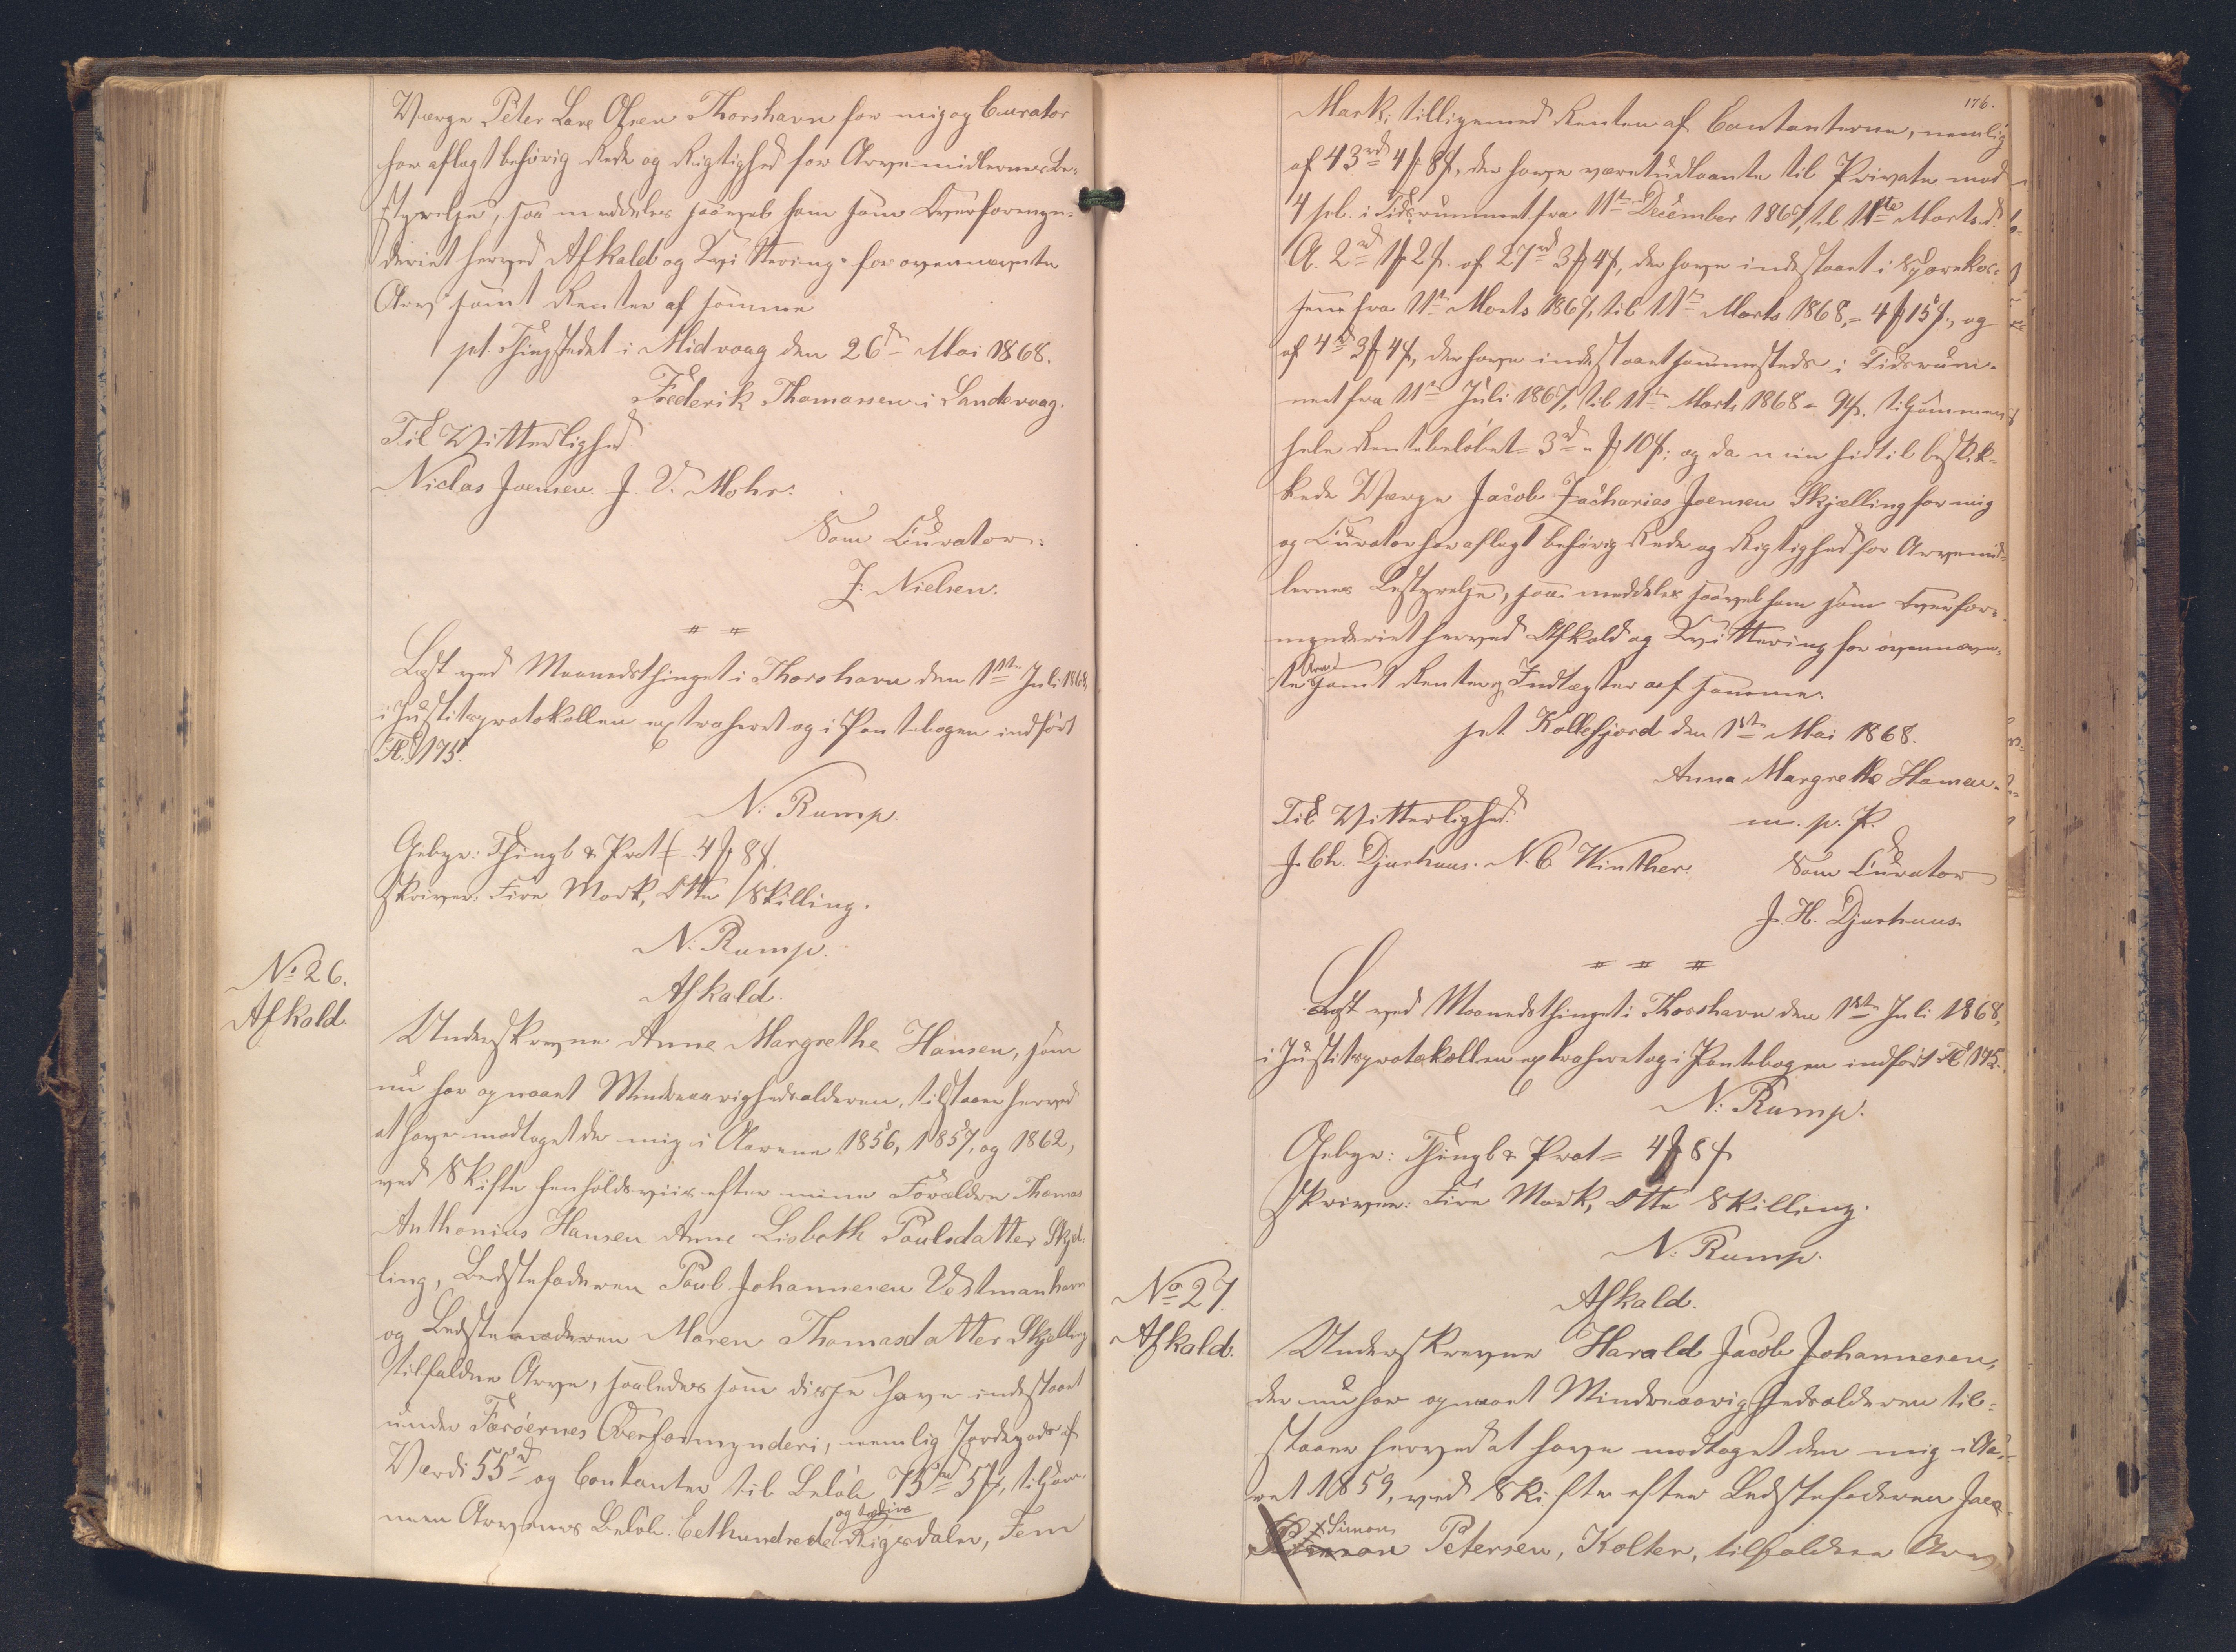 Værge Peter Lars Olsen Thorshavn for mig og Curator
har aflagt behörig Rede og Rigtighed for Arvemidlernes Be-
styrelse, saa meddeles saavel ham som Overformyn-
deriet herved Afkald og Qvittering for ovennævnte
Arv samt Renter af samme
pt. Thingstedet i Midvaag den 26de Mai 1868.
Frederik Thomassen i Sandevaag.
Til Vitterlighed
Niclas Joensen. J. V. Mohr.
Som Curator:
J. Nielsen.
Læst ved Maanedsthinget i Thorshavn den 1ste Juli 1868,
i Justitsprotokollen extraheret og i Pantebogen indfört
Fol. 175.
N: Rump.
Gebyr: Thingl. & Prot = 4 ₻ 8 β.
skriver: Fire Mark, Otte Skilling.
N. Rump.
No 26.
Afkald.
Afkald.
Underskrevne Anne Margrethe Hansen, som
nu har opnaaet Mindreaarighedsalderen, tilstaaer herved
at have modtaget de mig i Aarene 1856, 1857, og 1862,
ved Skifte henholdsviis efter mine Forældre Thomas
Anthonius Hansen Anne Lisbeth Poulsdatter Skjel-
ling, Bedstefaderen Poul Johannesen Vestmanhavn
og Bedstemoderen Maren Thomasdatter Skjelling
tilfaldne Arve, saaledes som disse have indstaaet
under Færöernes Overformynderi, nemlig Jordegods af
Værdi 55 rd og Contanter til Belöb 75 rd 5 ₻, tilsam-
men Arvenes Belöb Eethundrede og tredive Rigsdaler, Fem
176.
Mark; tilligemed Renten af Contanterne, nemlig
af 43 rd 4 ₻ 8 β, der have været udlaante til Private mod
4 pct. i Tidsrummet fra 11te December 1867, til 11te Marts d.
A. 2 rd 1 ₻ 2 β. af 27 rd 3 ₻ 4 β, der have indestaaet i Sparekas-
sen fra 11te Marts 1867, til 11te Marts 1868, = 4 ₻ 15 β, og
af 4 rd 3 ₻ 4 β, der have indestaaet sammesteds i Tidsrum-
met fra 11te Juli 1867, til 11te Marts 1868 = 9 β. tilsammen
hele Rentebelöbet = 3 rd " ₻ 10 β; og da min hidtil beskik-
kede Værge Jacob Zacharias Joensen Skjælling for mig
og Curator har aflagt behörig Rede og Rigtighed for Arvemid-
lernes Bestyrelse, saa meddeles saavel ham som Overfor-
mynderiet herved Afkald og Qvittering for ovennævn-
te Arv samt Renter og Indtægter af samme.
pt Kollefjord den 1ste Mai 1868.
Anna Margrethe Hansen.
Til Vitterlighed. m. p. P.
J. Ch. Djurhuus. N. C. Winther. Som Curator
J. H. Djurhuus.
Læst ved Maanedsthinget i Thorshavn den 1ste Juli 1868,
i Justitsprotokollen extraheret og i Pantebogen indfört Fol 175.
N: Rump.
Gebyr: Thingl & Prot = 4 ₻ 8 β
skriver: Fire Mark, Otte Skilling.
N: Rump.
No 27.
Afkald.
Afkald.
Underskrevne Harald Jacob Johannesen,
der nu har opnaaet Mindreaarighedsalderen til-
staaer herved at have modtaget den mig i Aa-
ret 1859, ved Skifte efter Bedstefaderen
x Simon Petersen, Kolter, tilfaldne Arv